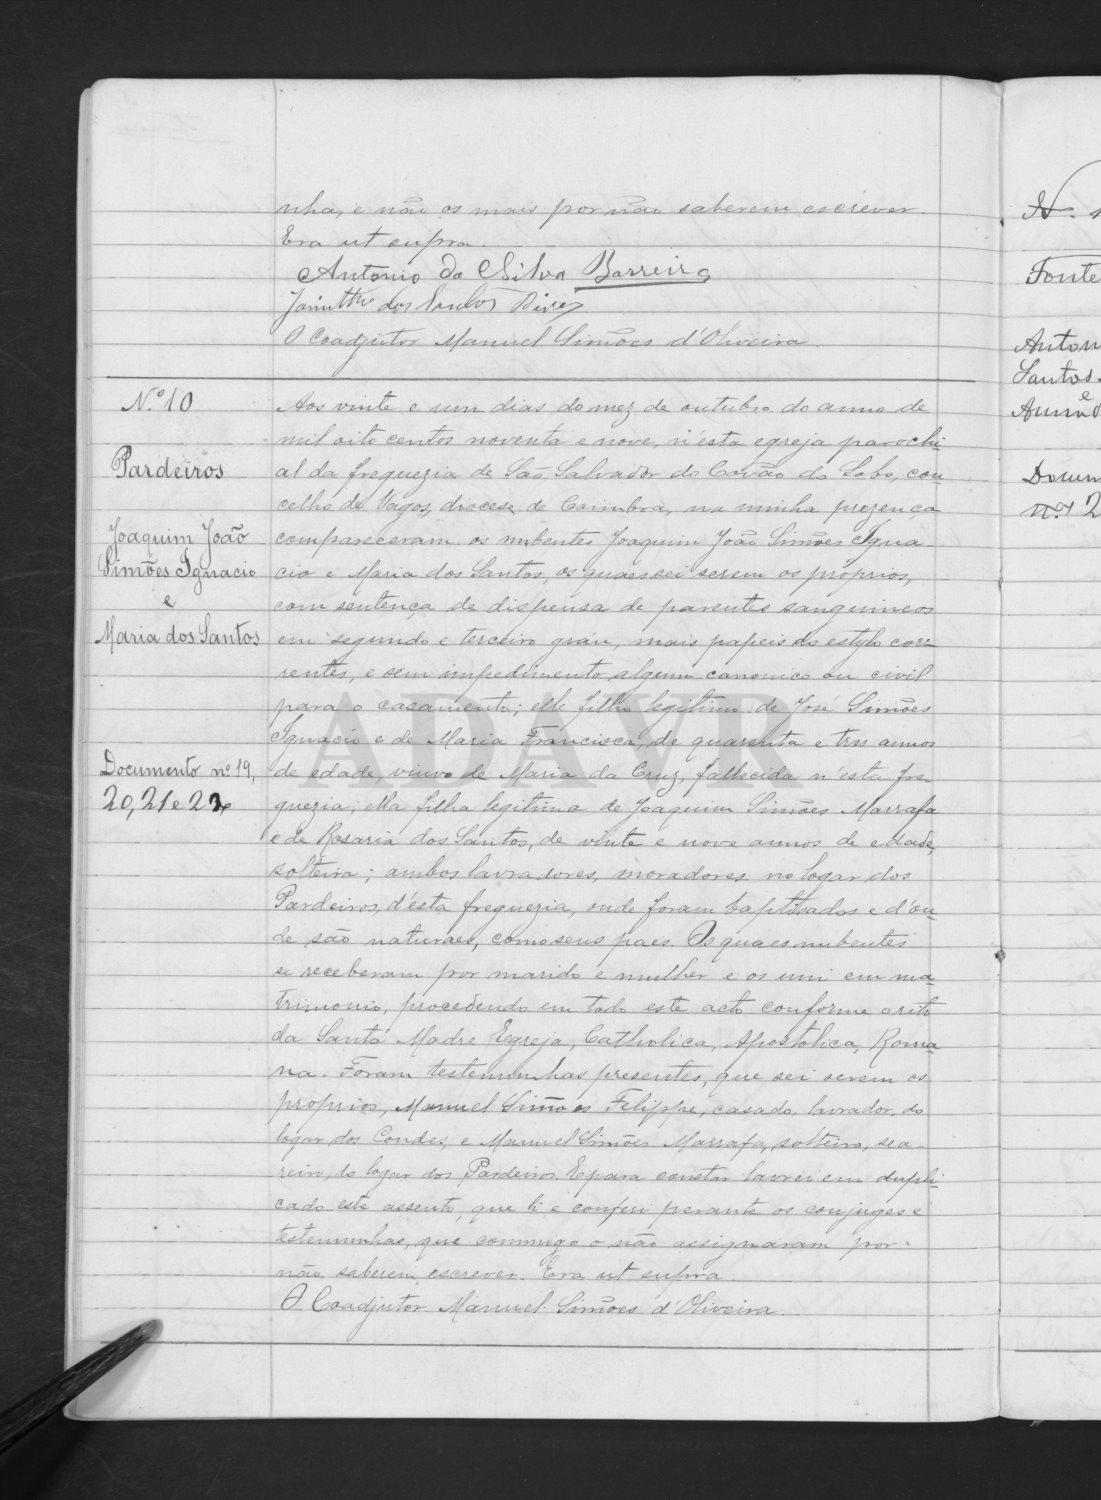 nha, e não os mais por não saberem escrever.
Era ut supra.
Antonio da Silva Barreira
dos Santos
O Coadjutor Manuel Simões d'Oliveira.
N.º 10
Pardeiros
Joaquim João
Simões Ignacio
e
Maria dos Santos
Documento nº 19,
20, 21 e 22
Aos vinte e um dias do mez de outubro do anno de
mil oito centos noventa e nove, n'esta egreja parochi-
al da freguezia de São Salvador do Covão do Lobo, con-
celho de Vagos, diocese de Coimbra, na minha prezença
compareceram os nubentes Joaquim João Simões Igna-
cio e Maria dos Santos, os quaes sei serem os proprios,
com sentença de dispensa de parentes sanguineos
em segundo e terceiro gráu, mais papeis do estylo cor-
rentes, e sem impedimento algum canonico ou civil
para o casamento; elle filho legitimo de José Simões
Ignacio e de Maria Francisca, de quarenta e tres annos
de edade, viuvo de Maria da Cruz, fallecida n'esta fre-
guezia; ella filha legitima de Joaquim Simões Marrafa
e de Rosaria dos Santos, de vinte e nove annos de edade,
solteira; ambos lavradores, moradores no logar dos
Pardeiros, d'ésta freguezia, onde foram baptisados e d'on-
de são naturaes, como seus paes. Os quaes nubentes
se receberam por marido e mulher e os uni em ma-
trimonio, procedendo em todo este acto conforme o rito
da Santa Madre Egreja, Catholica, Apostolica, Roma-
na. Foram testemunhas presentes, que sei serem os
proprios, Manuel Simões Felippe, casado, lavrador, do
logar dos Condes, e Manuel Simões Marrafa, solteiro, sea-
reiro, do logar dos Pardeiros. E para constar lavrei em dupli-
cado este assento, que li e conferi perante os conjuges e
testemunhas, que commigo o não assignaram por
não saberem escrever. Era ut supra.
O Coadjutor Manuel Simões d'Oliveira.
ADAVR
N.
Fonte
Anton
Santos
e
Anna
Docum
n.os 2